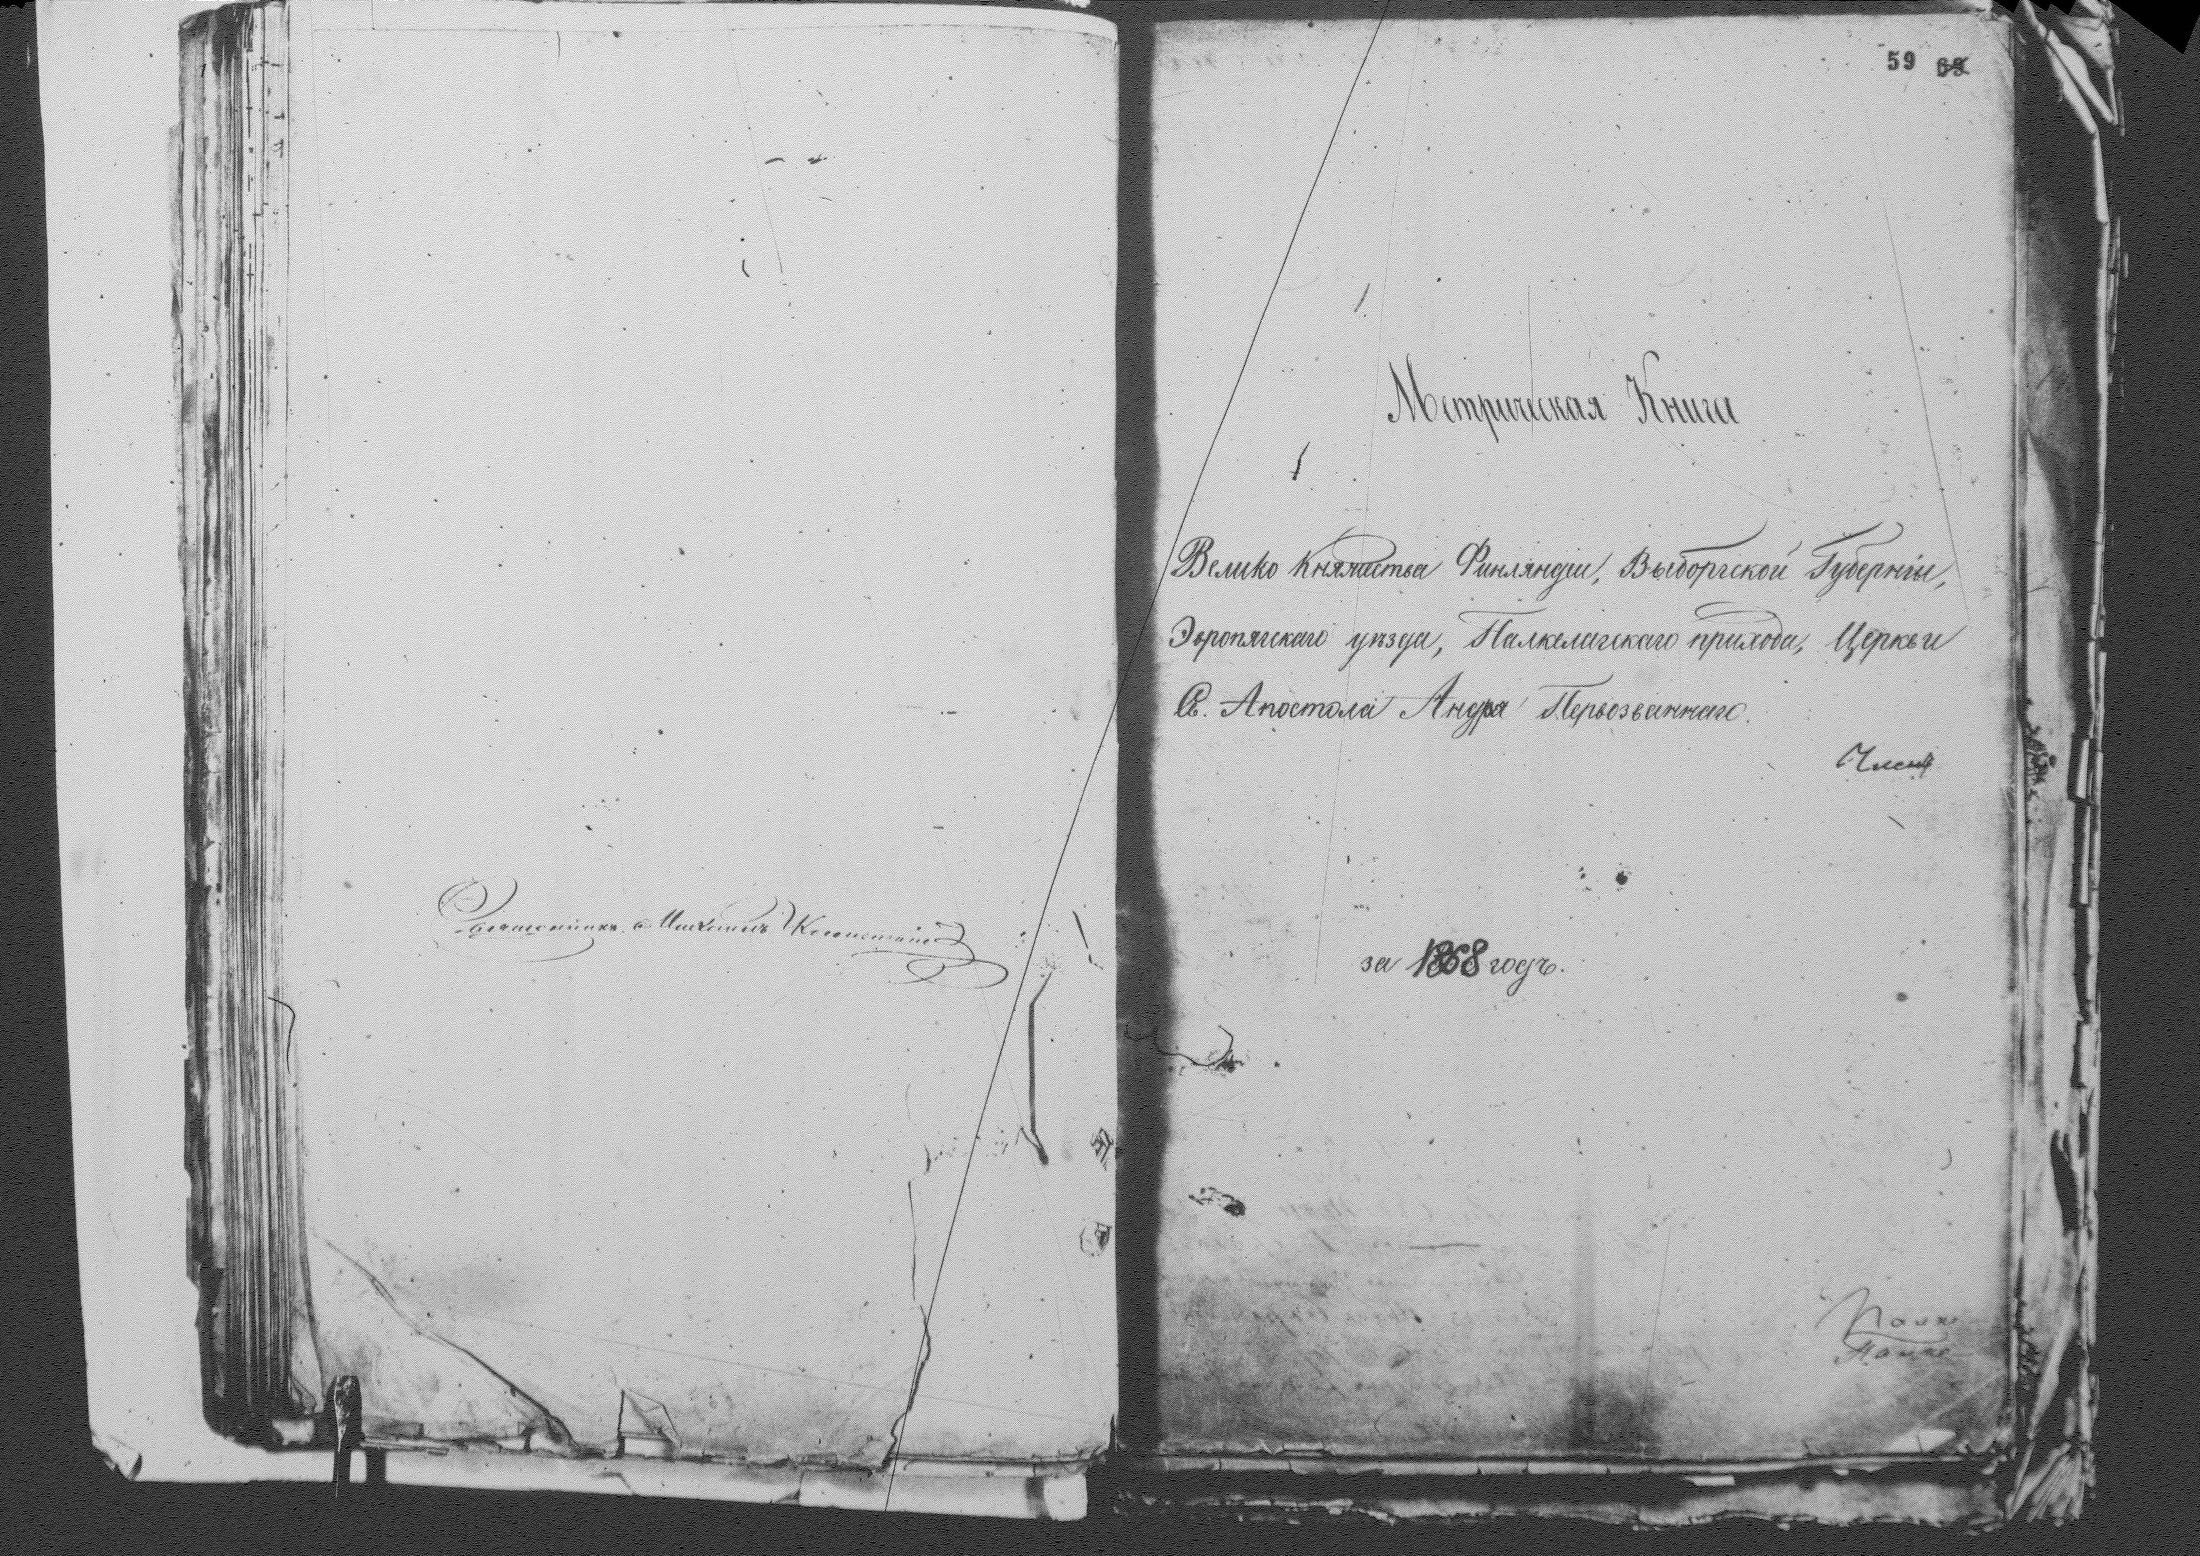 Священникъ Михаилъ
59 69
Метрическая Книга
Велико Княжества Финляндіи, Выборгской Губерніи,
Эвропяскаго уѣзда, Палкелагскаго прихода, Церкви
Св. Апостола Андрея Первозваннаго.
за 1868 годъ.